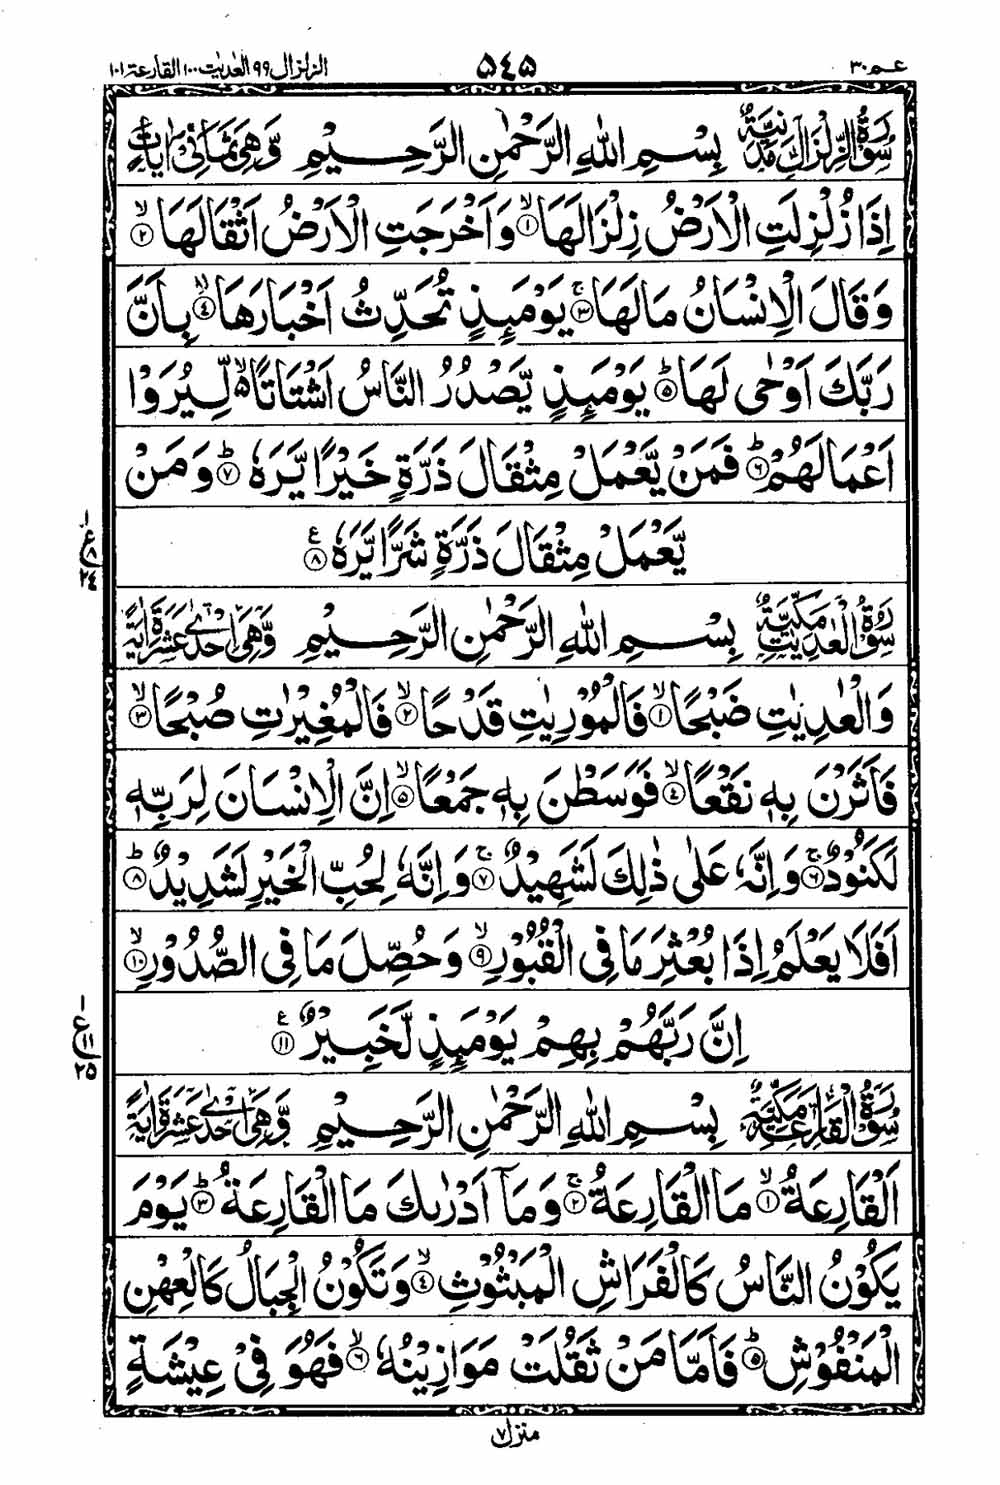 عـم ٣٠ ۵٤۵ الزلزال ٩٩ العٰدیٰت ١٠٠ القارعة ١٠١
سُوْرَةُ الزِّلْزَالِ مَدَنِيَّةٌ بِسْمِ اللّٰهِ الرَّحْمٰنِ الرَّحِيْمِ وَّهِىَ ثَمَانِىْ اٰيَاتٍ
اِذَا زُلْزِلَتِ الْاَرْضُ زِلْزَالَهَا ۙ﴿١﴾ وَاَخْرَجَتِ الْاَرْضُ اَثْقَالَهَا ۙ﴿٢﴾
وَقَالَ الْاِنْسَانُ مَالَهَا ۚ﴿٣﴾ يَوْمَئِذٍ تُحَدِّثُ اَخْبَارَهَا ۙ﴿٤﴾ بِاَنَّ
رَبَّكَ اَوْحٰى لَهَا ؕ﴿۵﴾ يَوْمَئِذٍ يَّصْدُرُ النَّاسُ اَشْتَاتًا ۙ۵ لِّيُرَوْا
اَعْمَالَهُمْ ؕ﴿٦﴾ فَمَنْ يَّعْمَلْ مِثْقَالَ ذَرَّةٍ خَيْرًا يَّرَهٗ ؕ﴿٧﴾ وَمَنْ
يَّعْمَلْ مِثْقَالَ ذَرَّةٍ شَرًّا يَّرَهٗ ﴿٨﴾ ع
١ ع ٨ ٢٤
سُوْرَةُ الْعٰدِيٰتِ مَكِّيَّةٌ بِسْمِ اللّٰهِ الرَّحْمٰنِ الرَّحِيْمِ وَّهِىَ اِحْدٰى عَشْرَةَ اٰيَةً
وَالْعٰدِيٰتِ ضَبْحًا ۙ﴿١﴾ فَالْمُوْرِيٰتِ قَدْحًا ۙ﴿٢﴾ فَالْمُغِيْرٰتِ صُبْحًا ۙ﴿٣﴾
فَاَثَرْنَ بِهٖ نَقْعًا ۙ﴿٤﴾ فَوَسَطْنَ بِهٖ جَمْعًا ۙ﴿۵﴾ اِنَّ الْاِنْسَانَ لِرَبِّهٖ
لَكَنُوْدٌ ۚ﴿٦﴾ وَاِنَّهٗ عَلٰى ذٰلِكَ لَشَهِيْدٌ ۚ﴿٧﴾ وَاِنَّهٗ لِحُبِّ الْخَيْرِ لَشَدِيْدٌ ؕ﴿٨﴾
اَفَلَا يَعْلَمُ اِذَا بُعْثِرَ مَا فِى الْقُبُوْرِ ۙ﴿٩﴾ وَحُصِّلَ مَا فِى الصُّدُوْرِ ۙ﴿١٠﴾
اِنَّ رَبَّهُمْ بِهِمْ يَوْمَئِذٍ لَّخَبِيْرٌ ﴿١١﴾ ع
١ ع ١١ ٢۵
سُوْرَةُ الْقَارِعَةِ مَكِّيَّةٌ بِسْمِ اللّٰهِ الرَّحْمٰنِ الرَّحِيْمِ وَّهِىَ اِحْدٰى عَشْرَةَ اٰيَةً
اَلْقَارِعَةُ ۙ﴿١﴾ مَا الْقَارِعَةُ ۚ﴿٢﴾ وَمَاۤ اَدْرٰىكَ مَا الْقَارِعَةُ ؕ﴿٣﴾ يَوْمَ
يَكُوْنُ النَّاسُ كَالْفَرَاشِ الْمَبْثُوْثِ ۙ﴿٤﴾ وَتَكُوْنُ الْجِبَالُ كَالْعِهْنِ
الْمَنْفُوْشِ ؕ﴿۵﴾ فَاَمَّا مَنْ ثَقُلَتْ مَوَازِيْنُهٗ ۙ﴿٦﴾ فَهُوَ فِىْ عِيْشَةٍ
منزل ٧